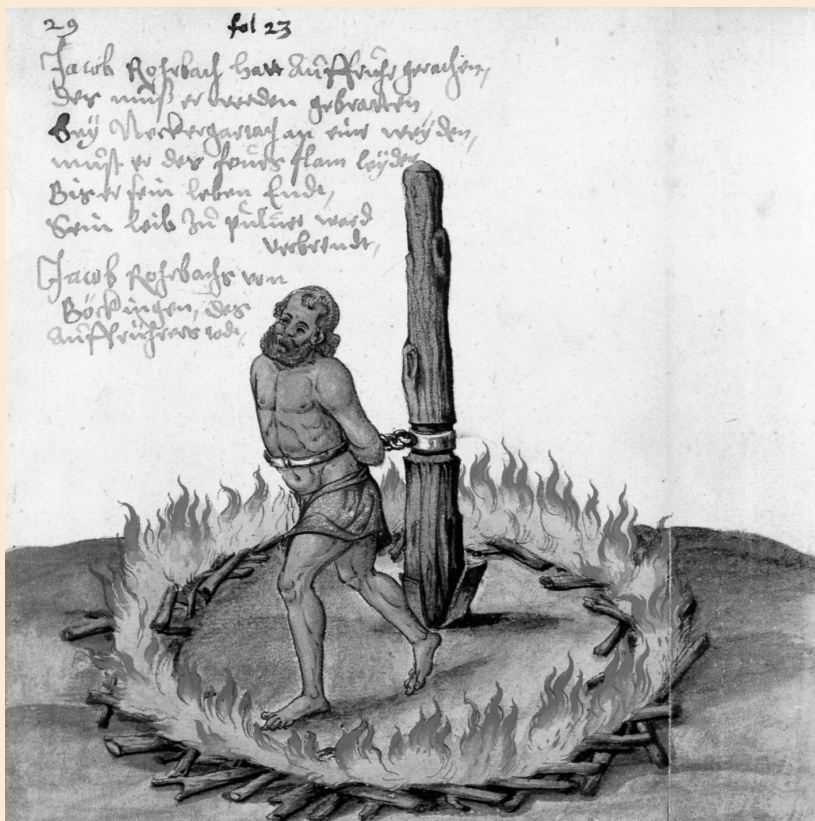 29 fol 23
Jacob Rohrbach hatt Auffruhr gerathen,
Des muß er werden gebratten,
Bey Neckergartach an eine weyden,
must er des feurs flam leyden
Bis er sein leben Endt,
Sein leib zu puluer ward
verbrendt,
Jacob Rohrbachs von
Böckingen, des
Auffrührers todt,